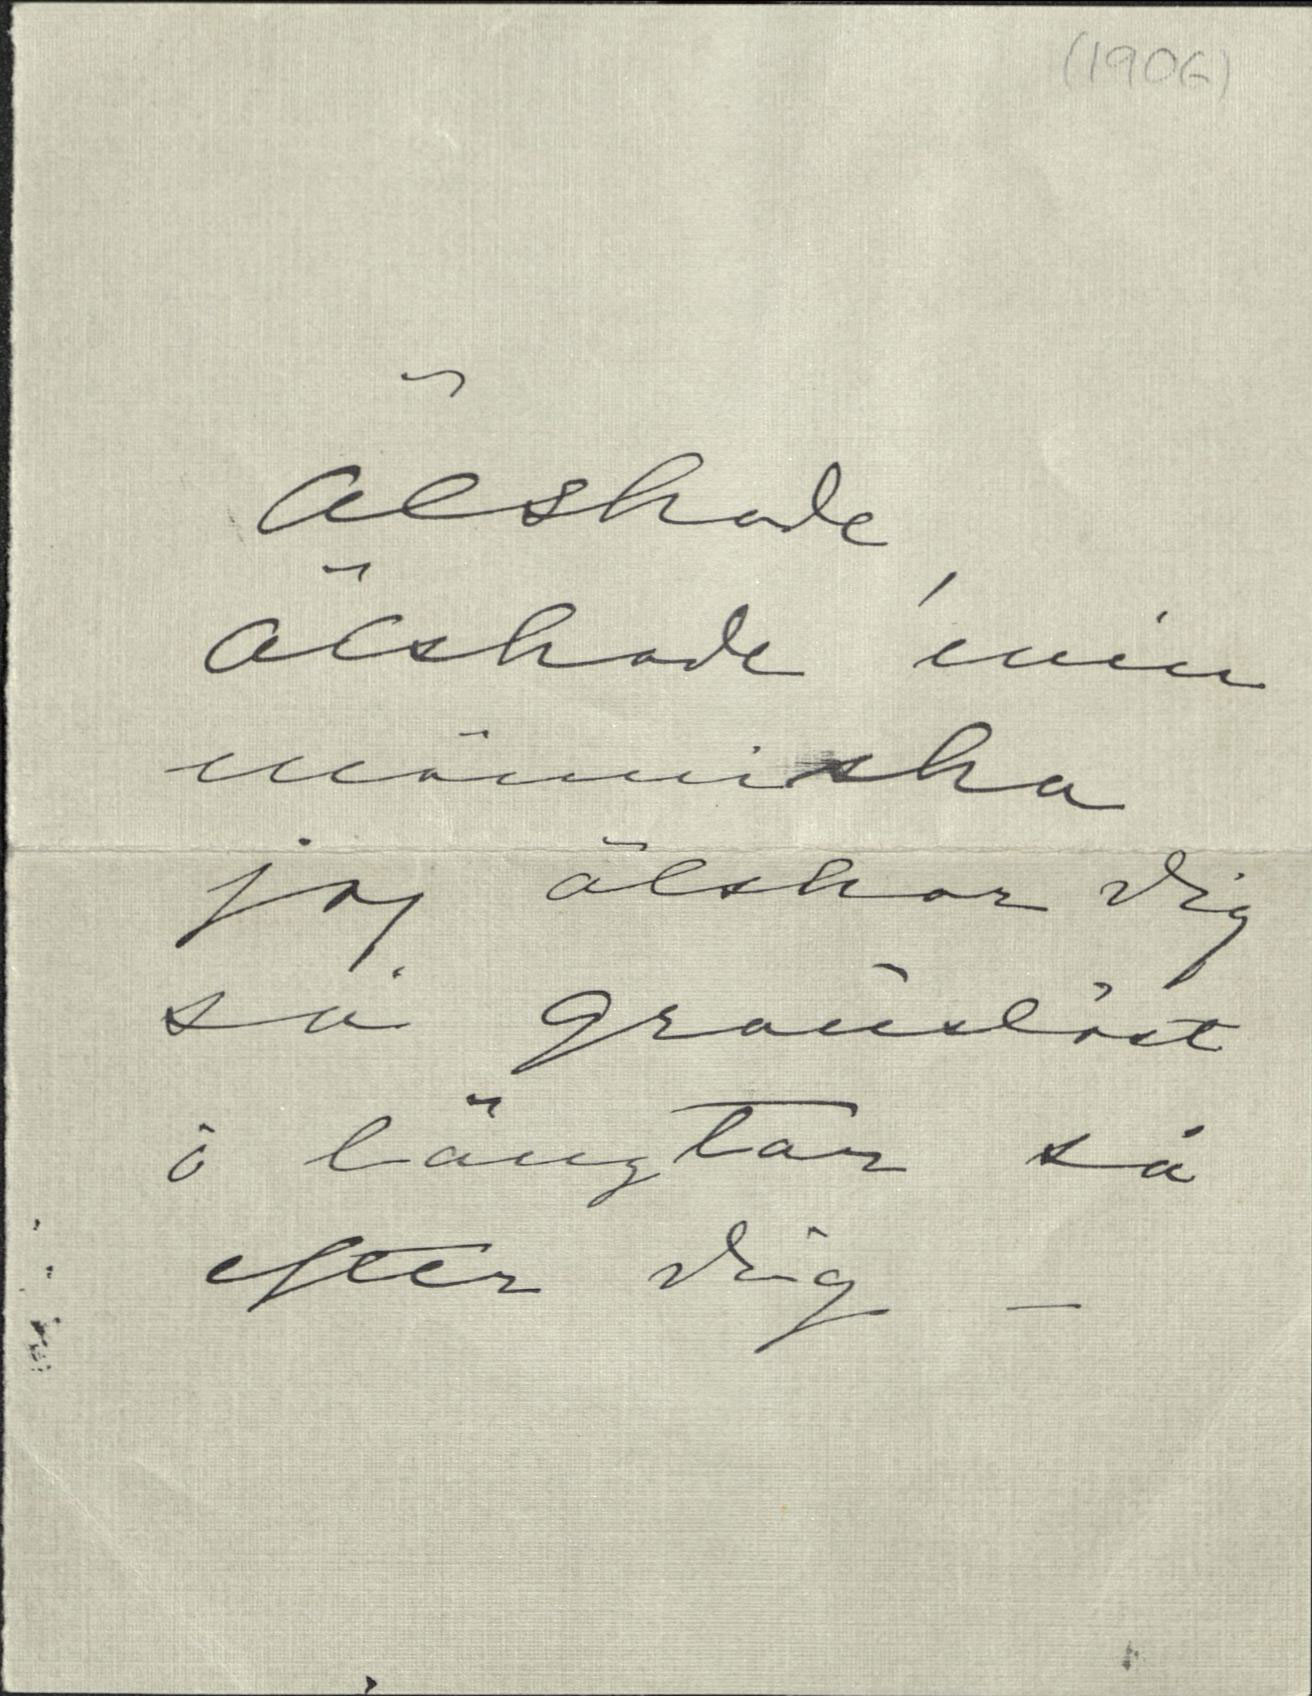 (1906)
älskade
älskade min
människa
jag älskar dig
så gränslöst
ö längtar så
efter dig –